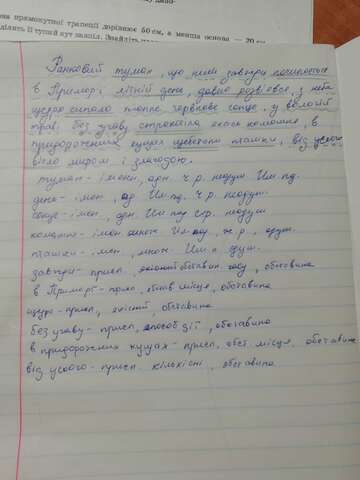 прямокутної трапеції дорівнює 50 см, а менша основа — 20 см
ділить її тупий кут навпіл. Знайдіть
Ранковий туман, що ними завжди починається
в Приморї літній день, давно розвіявся, з неба
щедро сипало тепле червове сонце, у вологій
траві без угаву строкотіла якась комашня, в
придорожніх кущах щебетали пташки, від усього
віяло миром і злагодою.
туман - іменн, одн. ч.р. неодуш. Им. пд.
день - імен, од Им. пд. ч.р. неодуш.
сонце - імен, одн. Им пд с.р. неодуш
комашня - імен. Им пд, ж р., одуш.
пташки - імен, множ. Им. п одуш.
завжди - присл, обставина
в Приморї - обст місце, обставина
щедро - присл, якісний, обставина
без угаву - присл, спосіб дії, обставина
в придорожніх кущах - присл, обст. місце, обставина
від усього - присл. кількісні, обставина